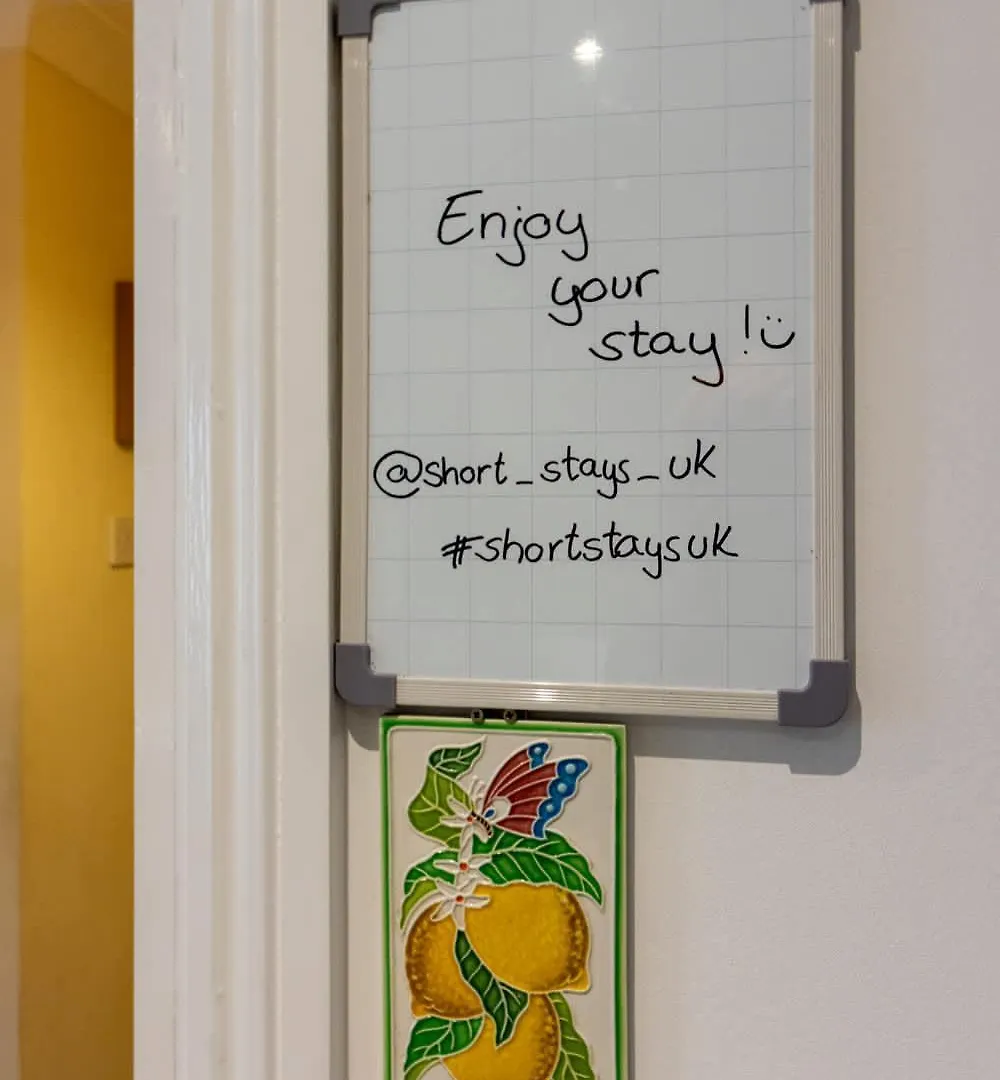 Enjoy
your
stay!ü
@short_stays_uk
#shortstaysuk